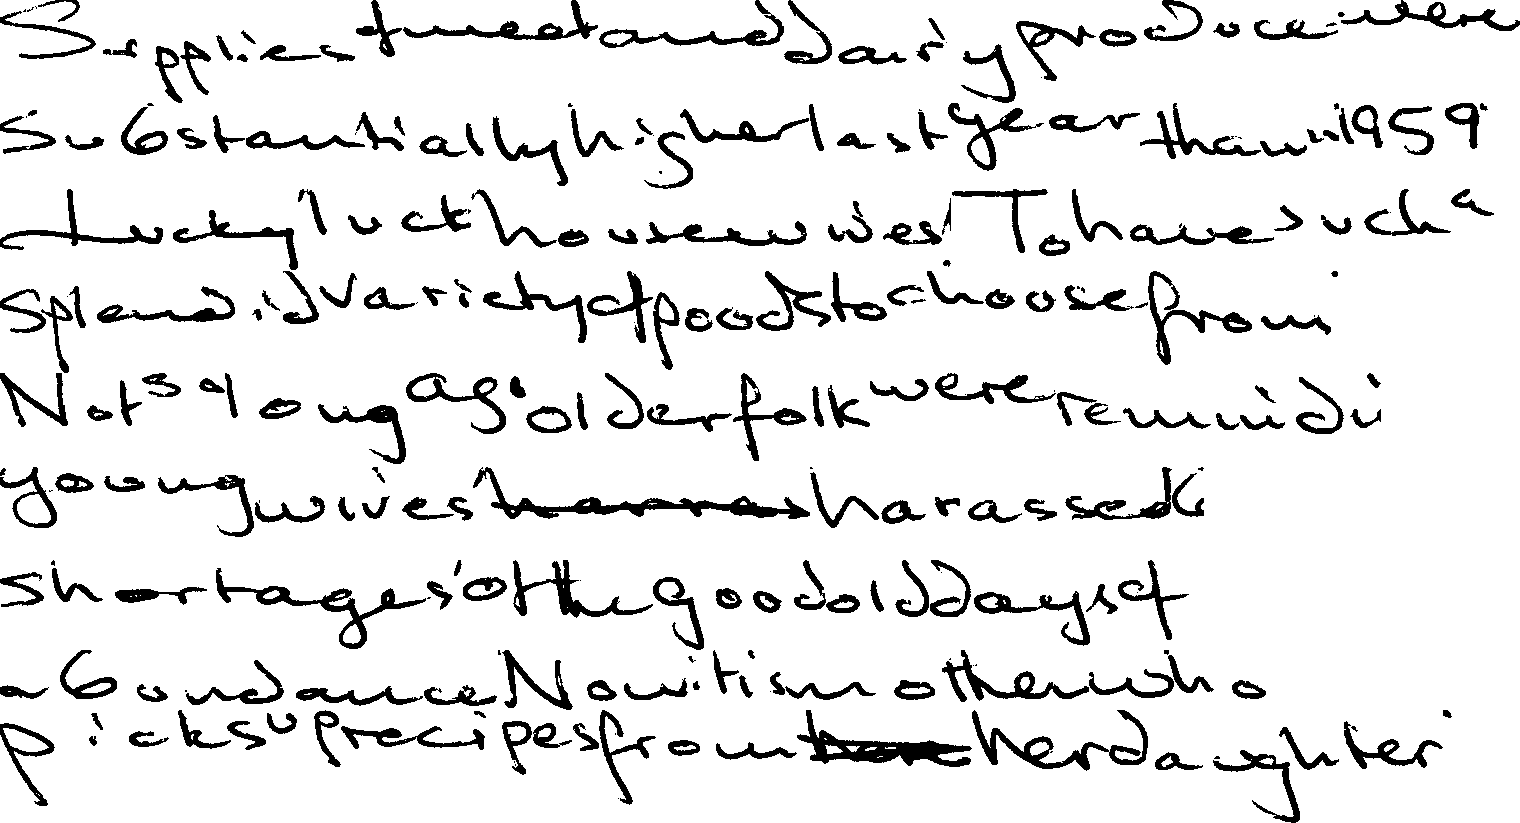 Supplies of meat and dairy produce were
substantially higher last year than in 1959.
Lucky luck housewives! To have such a
splendid variety of foods to choose from.
Not so long ago older folk were remindi
young wives harassed
shortages of the good old days of
abundance. Now it is mother who
picks up recipes from her daughter.